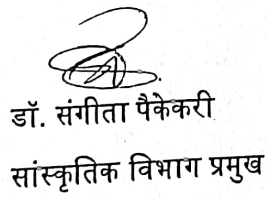 डॉ. संगीता पैकेकरी
सांस्कृतिक विभाग प्रमुख